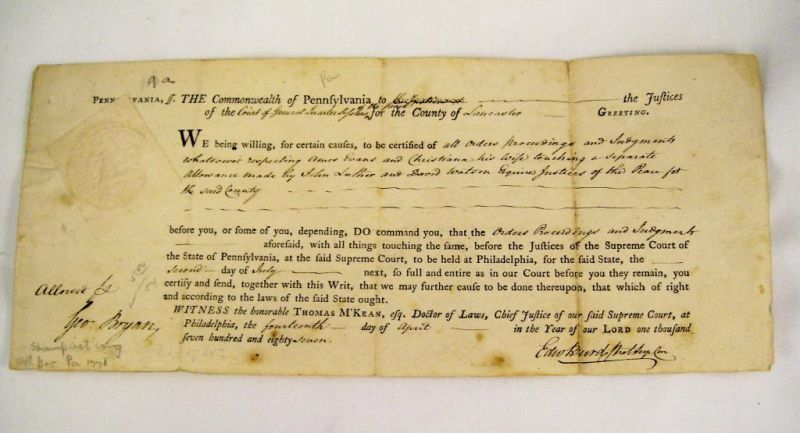 Pa
PENNSYLVANIA, ſſ. THE Commonwealth of Pennſylvania, to the Juſtices
of the Court of General Quarter Seſsions for the County of Lancaster GREETING.
WE being willing, for certain cauſes, to be certified of all Orders Proceedings and Judgments
whatsoever respecting Amos Evans and Christiana his Wife touching a separate
Allowance made by John Luther and David Watson Esquires Justices of the Peace for
the said County
before you, or ſome of you, depending, DO command you, that the Orders Proceedings and Judgments
aforeſaid, with all things touching the ſame, before the Juſtices of the Supreme Court of
the State of Pennſylvania, at the ſaid Supreme Court, to be held at Philadelphia, for the ſaid State, the
Second day of July next, ſo full and entire as in our Court before you they remain, you
certify and ſend, together with this Writ, that we may further cauſe to be done thereupon, that which of right
and according to the laws of the ſaid State ought.
WITNESS the honorable THOMAS M'KEAN, eſq. Doctor of Laws, Chief Juſtice of our ſaid Supreme Court, at
Philadelphia, the fourteenth day of April in the Year of our LORD one thouſand
ſeven hundred and eighty seven.
Edw Burd
Allowed
Geo Bryan
Stamp act Cong
Pa